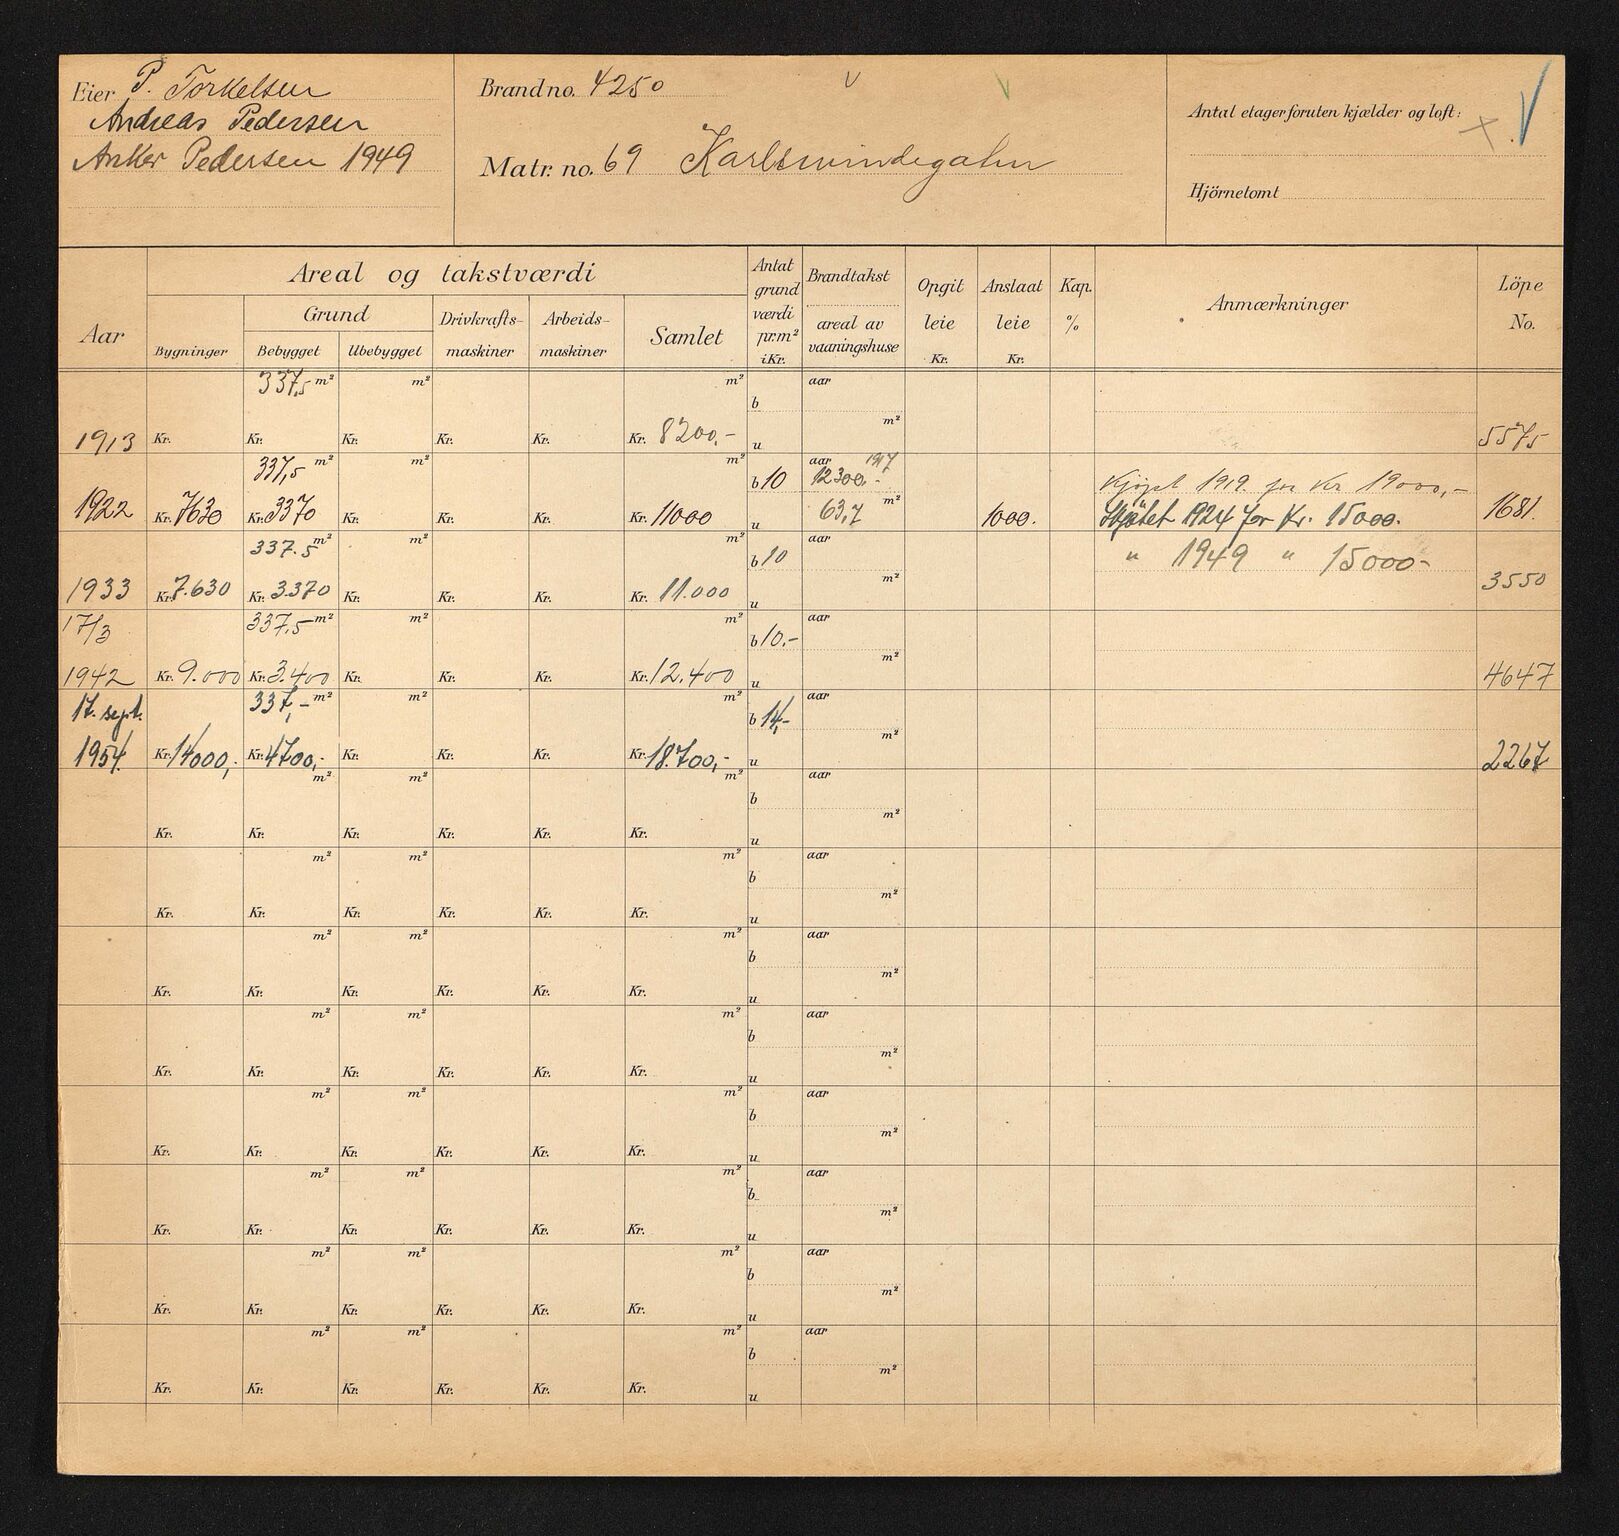 Eier P. Torkelsen
Andreas Pedersen
Anker Pedersen 1949
Brand no. 4250
Matr. no. 69 Karlsmindegaten
Antal etager foruten kjælder og loft:
Hjörnetomt
Aar
Areal og takstværdi
Bygninger
Grund
Bebygget Ubebygget
Drivkrafts-
maskiner
Arbeids-
maskiner
Samlet
Antat
grund
værdi
pr. m²
i Kr.
Brandtakst
areal av
vaaningshuse
Opgit
leie
Kr.
Anslaat
leie
Kr.
Kap.
%
Anmærkninger
Löpe
No.
337,5 m² m² m² aar
b
m²
1913 Kr. Kr. Kr. Kr. Kr. Kr. 8200,- u 5575
337,5 m² m² m² aar 1917
b 10 12300.-
Kjöpt 1919 for Kr 19000,-
1922 Kr. 7630 Kr. 3370 Kr. Kr. Kr. Kr. 11000 u 63,7 m² 1000. Skjötet 1924 for Kr. 15000. 1681.
337.5 m² m² m² aar
b 10 " 1949 " 15000-
m²
1933 Kr. 7.630 Kr. 3.370 Kr. Kr. Kr. Kr. 11.000 u 3550
17/3 337,5 m² m² m² aar
b 10.-
m²
1942 Kr. 9.000 Kr. 3.400 Kr. Kr. Kr. Kr. 12.400 u 4647
17. sept. 337,- m² m² m² aar
b 14,-
m²
1954. Kr. 14000,- Kr. 4700,- Kr. Kr. Kr. Kr. 18.700,- u 2267
m² m² m² aar
b
m²
Kr. Kr. Kr. Kr. Kr. Kr. u
m² m² m² aar
b
m²
Kr. Kr. Kr. Kr. Kr. Kr. u
m² m² m² aar
b
m²
Kr. Kr. Kr. Kr. Kr. Kr. u
m² m² m² aar
b
m²
Kr. Kr. Kr. Kr. Kr. Kr. u
m² m² m² aar
b
m²
Kr. Kr. Kr. Kr. Kr. Kr. u
m² m² m² aar
b
m²
Kr. Kr. Kr. Kr. Kr. Kr. u
m² m² m² aar
b
m²
Kr. Kr. Kr. Kr. Kr. Kr. u
m² m² m² aar
b
m²
Kr. Kr. Kr. Kr. Kr. Kr. u